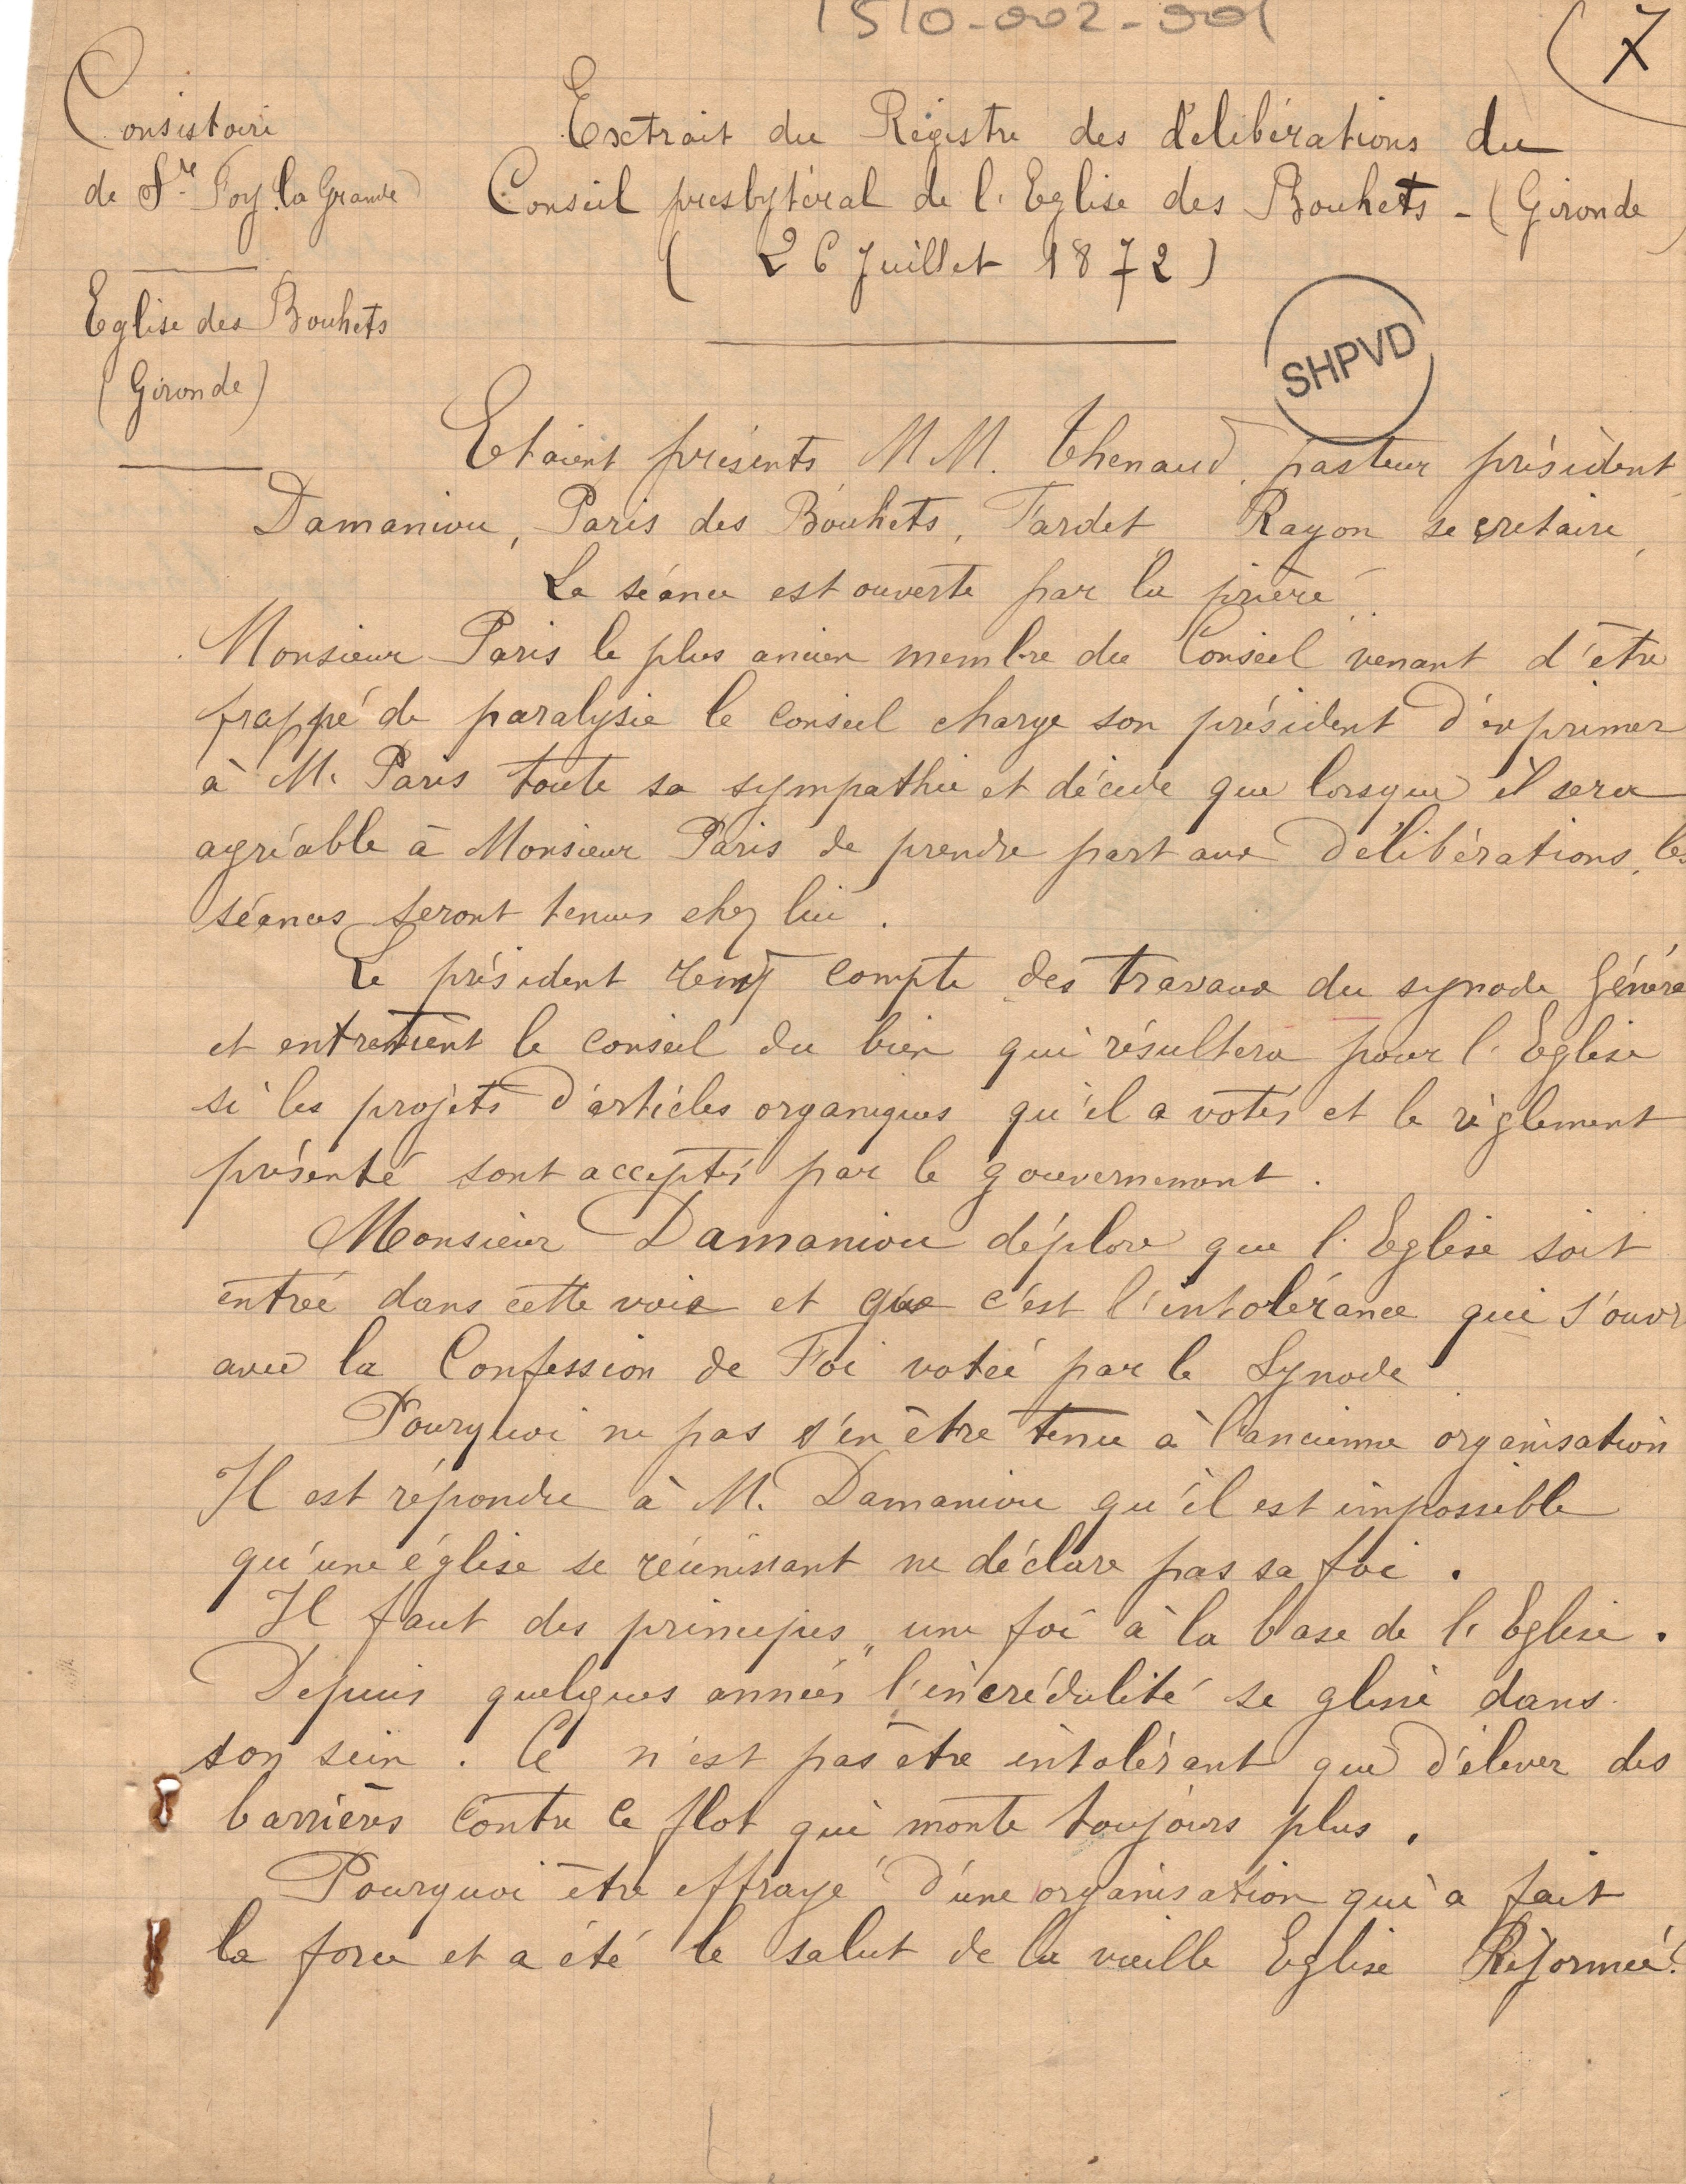 1510-002-001
7
Consistoire
de Ste Foy la Grande
Eglise des Bouhets
(Gironde)
Extrait du Régistre des délibérations du
Conseil presbytéral de l'Eglise des Bouhets - (Gironde)
( 26 Juillet 1872 )
SHPVD
Etaient présents MM. Thenaud, pasteur président
Damaniou, Paris des Bouhets, Fardet Rayon secretaire,
La séance est ouverte par la prière.
Monsieur Paris le plus ancien membre du Conseil venant d'être
frappé de paralysie le conseil charge son président d'exprimer
à M. Paris toute sa sympathie et décide que lorsque il sera
agréable à Monsieur Paris de prendre part aux délibérations, les
séances seront tenues chez lui.
Le président rend compte des travaux du synode Généra
et entretient le conseil du bien qui résultera pour l'Eglise
si les projets d'articles organiques qu'il a votés et le règlement
présenté sont acceptés par le gouvernement.
Monsieur Damaniou déplore que l'Eglise soit
entrée dans cette voie et que c'est l'intolérance qui s'ouvr
avec la Confession de Foi votée par le Synode.
Pourquoi ne pas s'en être tenu à l'ancienne organisation
Il est répondu à M. Damaniou qu'il est impossible
qu'une église se réunissant ne déclare pas sa foi.
Il faut des principes, une foi à la base de l'Eglise.
Depuis quelques années l'incrédulité se glisse dans
son sein. Ce n'est pas être intolérant que d'élever des
barrières contre ce flot qui monte toujours plus.
Pourquoi être effrayé d'une organisation qui a fait
la force et a été le salut de la vieille Eglise Réformée?